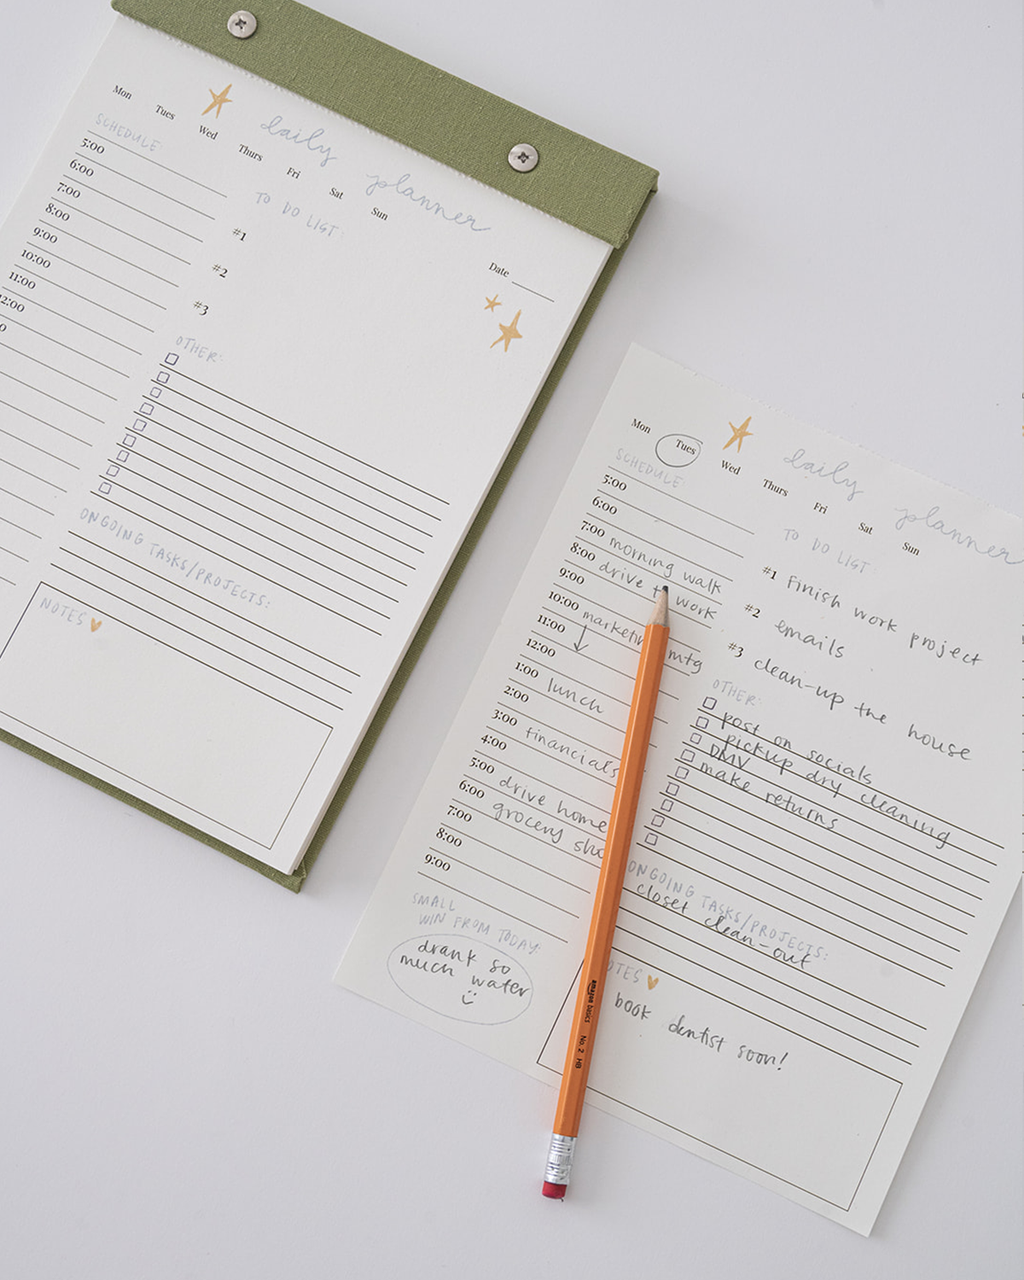 Mon Tues Wed Thurs Fri Sat Sun
daily planner
SCHEDULE:
5:00
6:00
7:00
8:00
9:00
10:00
11:00
TO DO LIST:
#1
#2
#3
Date
OTHER:
ONGOING TASKS/PROJECTS:
NOTES
Mon Tues Wed Thurs Fri Sat Sun
daily planner
SCHEDULE:
5:00
6:00
7:00 morning walk
8:00 drive to work
9:00
10:00 marketing mtg
11:00
12:00
1:00 lunch
2:00
3:00 financials
4:00
5:00 drive home
6:00 grocery
7:00
8:00
9:00
SMALL
WIN FROM TODAY:
drank so
much water
TO DO LIST:
#1 Finish work project
#2 emails
#3 clean-up the house
OTHER:
post on socials
pickup dry cleaning
DMV
make returns
ONGOING TASKS/PROJECTS:
closet clean-out
NOTES
book dentist soon!
amazon basics No. 2 HB